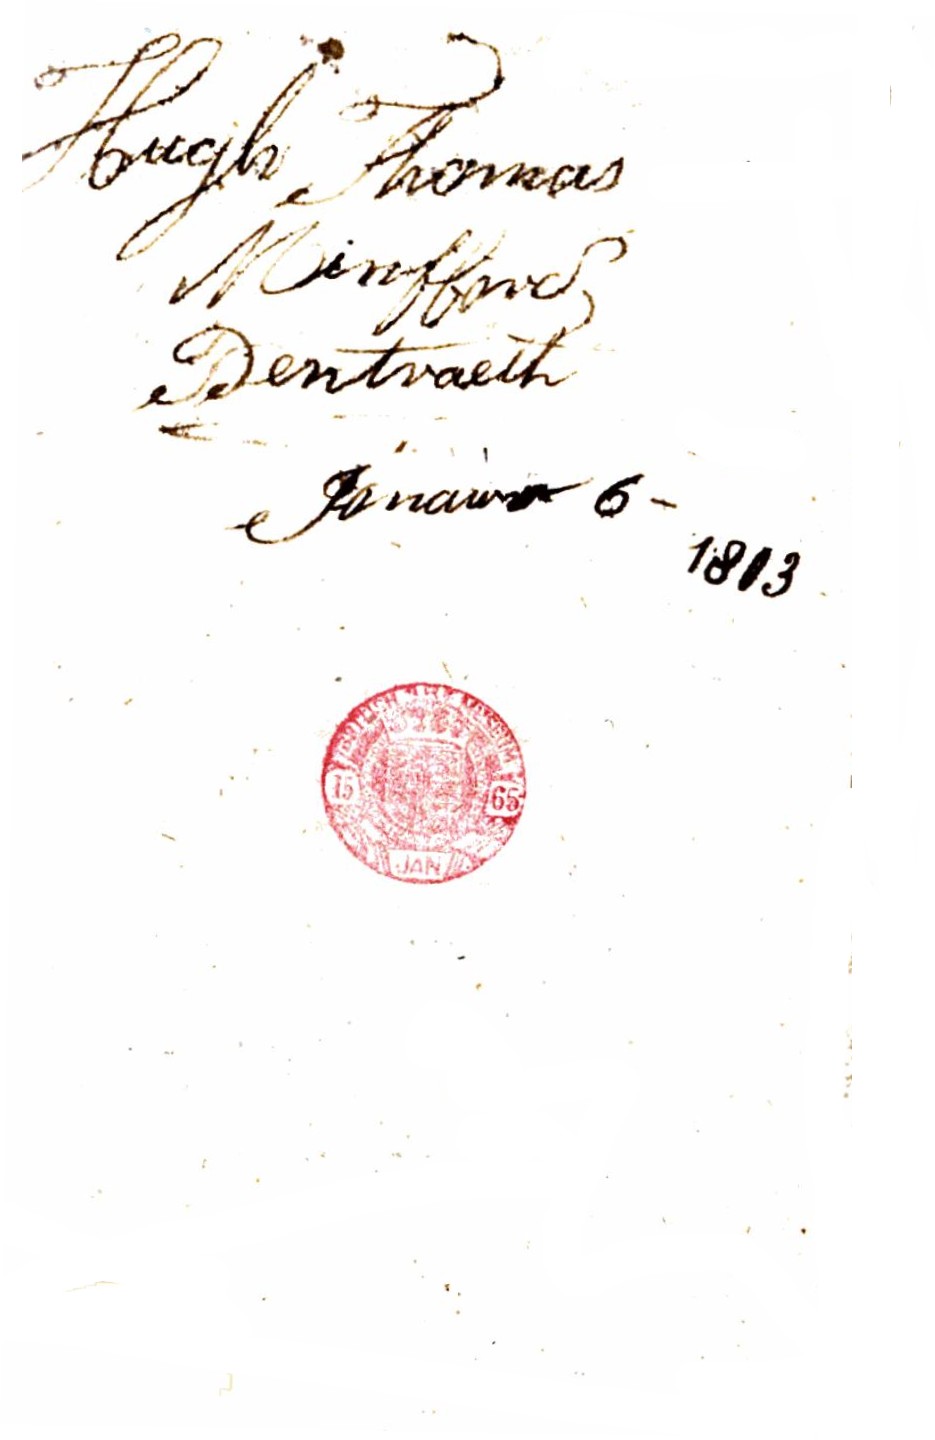 Hugh Thomas
Minfford
Pentraeth
6 -
1813
BRITISH MUSEUM
15 65
JAN